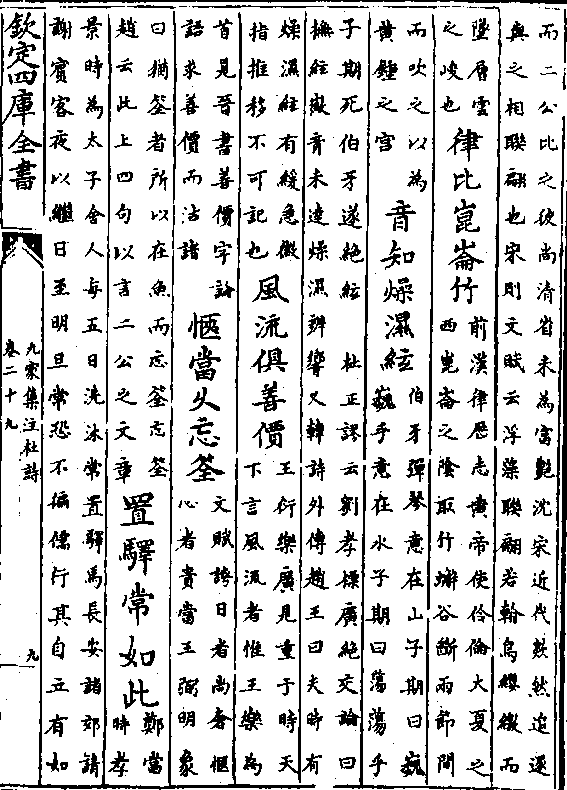 而二公比之彼尚清省未為富艷沈宋近代敻然追逐
與之相聯翩也宋則文賦云浮藻聯翩若翰鳥纓繳而
墜層雲
之峻也
律比崑崙竹
前漢律歴志黄帝使伶倫大夏之
西崑崙之陰取竹嶰谷斷兩節間
而吹之以為
黄鍾之宫
音知燥濕絃
伯牙彈琴意在山子期曰巍
巍乎意在水子期曰蕩蕩乎
子期死伯牙遂絶絃 杜正謬云劉孝標廣絶交論曰
撫絃徽音未達燥濕辨響又韓詩外傳趙王曰夫時有
燥濕絃有緩急徽
指推移不可記也
風流俱善價
王衍樂廣見重于時天
下言風流者惟王樂為
首見晉書善價字論
語求善價而沽諸
愜當久忘筌
文賦誇目者尚奢愜
心者貴當王弼明象
曰猶筌者所以在魚而忘筌忘筌
趙云此上四句以言二公之文章
置驛常如此
鄭當
時孝
景時為太子舍人每五日洗沐常置驛馬長安諸郊請
謝賓客夜以繼日至明旦常恐不徧儒行其自立有如
欽定四庫全書
九家集注杜詩
卷二十九
九